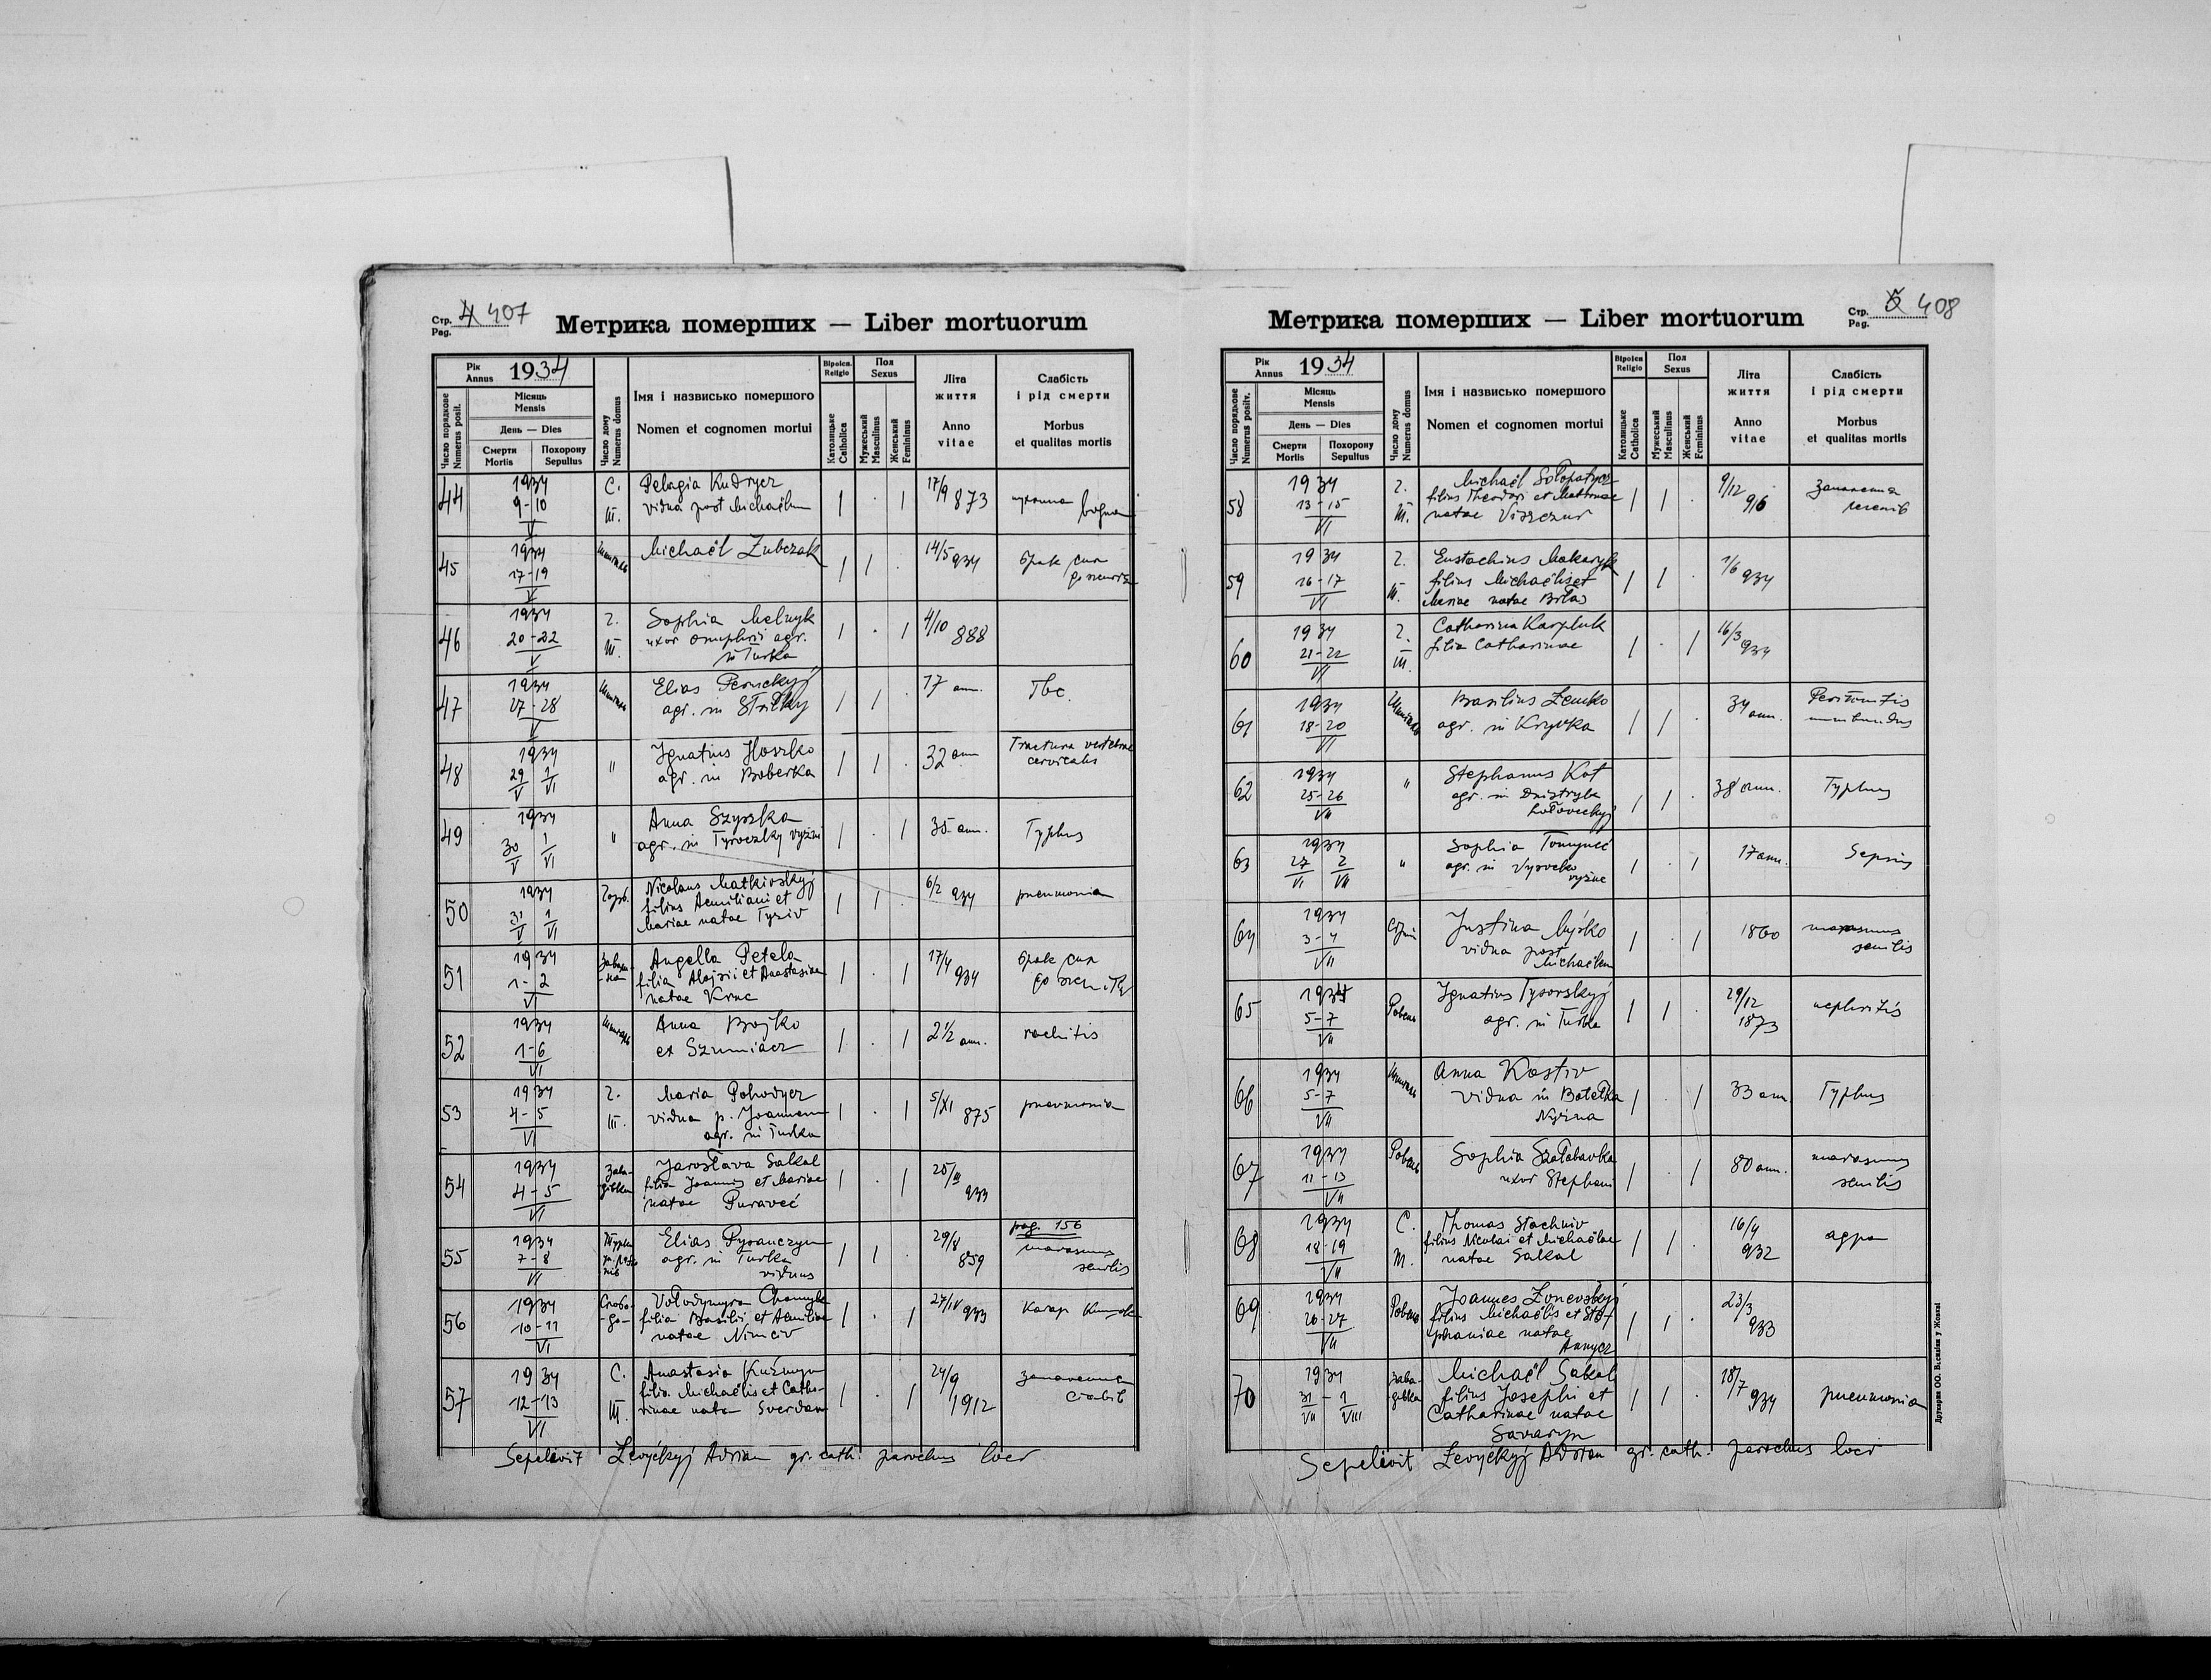 Стр. Pag. 4 407
Метрика померших — Liber mortuorum
Рік Annus 1934
Число порядкове Numerus posit.
Місяць Mensis
День — Dies
Смерти Mortis
Похорону Sepultus
Число дому Numerus domus
Імя і назвисько помершого
Nomen et cognomen mortui
Віроісп. Religio
Католицьке Catholica
Пол Sexus
Мужеський Masculinus
Женський Femininus
Літа життя
Anno vitae
Слабість і рід смерти
Morbus et qualitas mortis
44 1934 9-10 V C. III. Pelagia Kudrycz
vidua post Michaëlem 17/9 873
45 1934 17-19 V Michaël Zubczak 14/5 934 брак сил
46 1934 20-22 V 2. III. Sophia Melnyk
uxor Onuphrii agr.
in Turka 4/10 888
47 1934 27-28 V Elias
agr. in 17 ann. Tbc.
48 1934 29 V 1 VI " Ignatius Hoszko
agr. in Boberka 32 ann Fractura vertebrae
cervicalis
49 1934 30 V 1 VI " Anna Szyszka
agr. in vyžni 35 ann. Typhus
50 1934 31 V 1 VI Nicolaus Matkivskyj
filius Aemiliani et
Mariae natae Tysiv 6/2 934 pneumonia
51 1934 1-2 VI Angella Petela
filia Alojsii et Anastasiae
natae 17/4 934 брак сил
до
52 1934 1-6 VI Anna Bojko
ex Szumiacz 2½ ann. rachitis
53 1934 4-5 VI 2. III. Maria
vidua p. Joannem
agr. in Turka 5/XI 875 pneumonia
54 1934 4-5 VI Jarosłava Sakal
filia Joannis et Mariae
natae 933
55 1934 7-8 VI Elias
agr. in Turka
viduus 29/8 859 pag. 156
marasmus
senilis
56 1934 10-11 VI Vołodymyra
filia Basilii et Aemiliae
natae Nimciv 27/IV 933
57 1934 12-13 VI C. III. Anastasia
filia Michaëlis et Catha-
rinae 24/9 1912 запалення
Sepelivit Łevyćkyj Adrian gr. cath. parochus loci
Метрика померших — Liber mortuorum
Стр. Pag. 408
Рік Annus 1934
Число порядкове Numerus positv.
Місяць Mensis
День — Dies
Смерти Mortis
Похорону Sepultus
Число дому Numerus domus
Імя і назвисько помершого
Nomen et cognomen mortui
Віроісп Religio
Католицьке Catholica
Пол Sexus
Мужеський Masculinus
Женський Femininus
Літа життя
Anno vitae
Слабість і рід смерти
Morbus et qualitas mortis
58 1934 13-15 VI 2. III. Michaël
filius Theodori et Matronae
natae 9/12 916 запалення
59 1934 16-17 VI 2. III. Eustachius Makaryk
filius Michaëlis et
Mariae natae Biłas 1/6 934
60 1934 21-22 VI 2. III. Catharina Karpluk
filia Catharinae 16/3 934
61 1934 18-20 VI Basilius Zemko
agr. in Krywka 34 ann. Peritonitis
62 1934 25-26 VII " Stephanus Kot
agr. in Dnistryk
38 ann. Typhus
63 1934 27 VI 2 VII " Sophia
agr. in Vysocko
vyžne 17 ann. Sepsis
64 1934 3-4 VII Justina
vidua post
Michaëlem 1860 marasmus
senilis
65 1934 5-7 VII Ignatius Tysovskyj
agr. in Turka 29/12 1873 nephritis
66 1934 5-7 VII Anna Kostiv
vidua in Botelka
33 ann. Typhus
67 1934 11-13 VII Sophia Szałabavka
uxor Stephani 80 ann. marasmus
senilis
68 1934 18-19 VII C. III. Thomas Stachniv
filius Nicolai et Michaëlae
natae Sakal 16/4 932
69 1934 26-27 VII Joannes
filius Michaëlis et Ste-
phaniae natae
23/3 933
70 1934 31 VII - 1 VIII Michaël Sakal
filius Josephi et
Catharinae natae
Savaryn 18/7 934 pneumonia
Sepelivit Łevyćkyj Adrian gr. cath. parochus loci
Друкарня ОО. Василіян у Жовкві